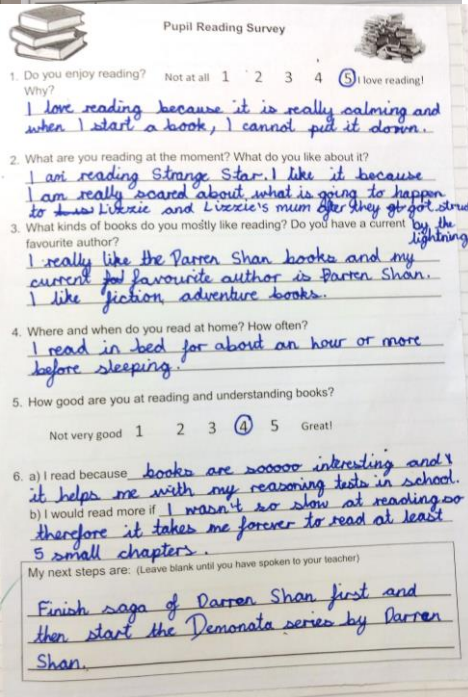 Pupil Reading Survey
1. Do you enjoy reading? Not at all 1 2 3 4 5 I love reading!
Why?
I love reading because it is really calming and
when I start a book, I cannot put it down.
2. What are you reading at the moment? What do you like about it?
I am reading Strange Star. I like it because
I am really scared about what is going to happen
to Lizzie and Lizzie's mum after they got struck
by the
lightning
3. What kinds of books do you mostly like reading? Do you have a current
favourite author?
I really like the Darren Shan books and my
current favourite author is Darren Shan.
I like fiction, adventure books.
4. Where and when do you read at home? How often?
I read in bed for about an hour or more
before sleeping.
5. How good are you at reading and understanding books?
Not very good 1 2 3 4 5 Great!
6. a) I read because books are soooo interesting and
it helps me with my reasoning tests in school.
b) I would read more if I wasn't so slow at reading so
therefore it takes me forever to read at least
5 small chapters.
My next steps are: (Leave blank until you have spoken to your teacher)
Finish saga of Darren Shan first and
then start the Demonata series by Darren
Shan.